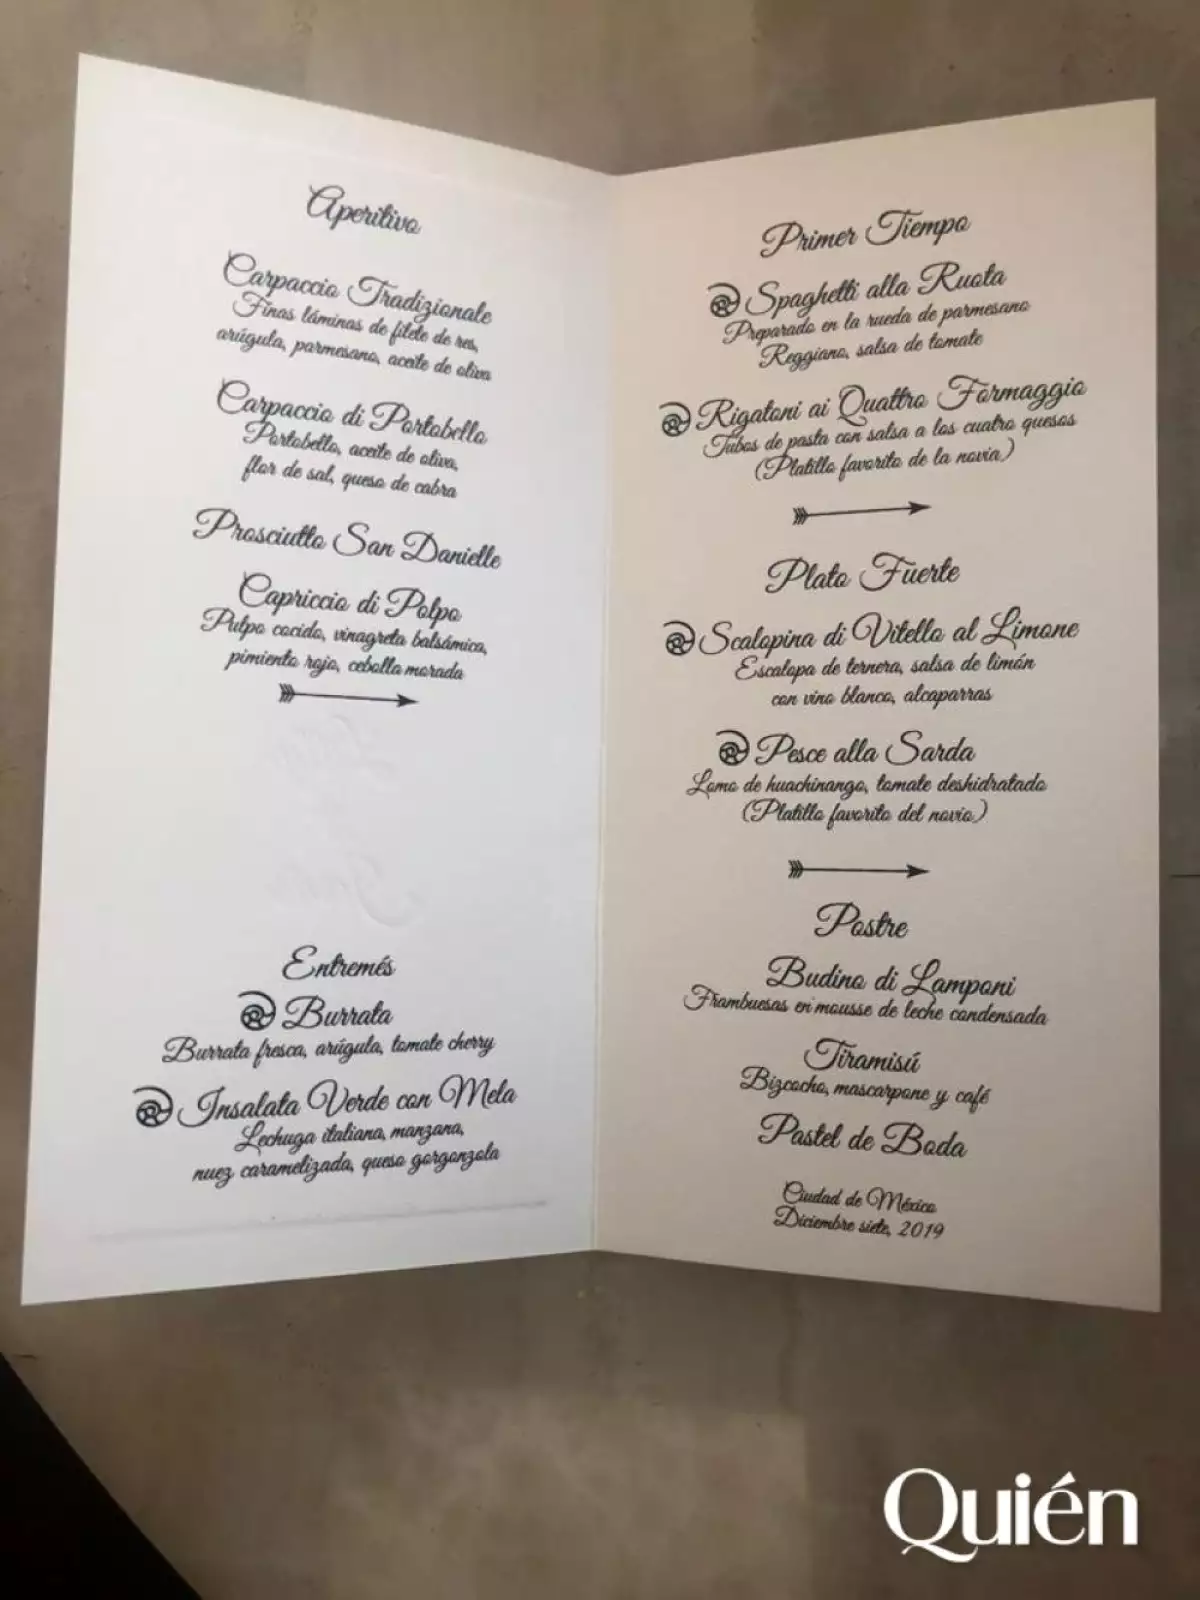 Aperitivo
Carpaccio Tradizionale
Finas láminas de filete de res,
arúgula, parmesano, aceite de oliva
Carpaccio di Portobello
Portobello, aceite de oliva,
flor de sal, queso de cabra
Prosciutto San Danielle
Capriccio di Polpo
Pulpo cocido, vinagreta balsámica,
pimiento rojo, cebolla morada
Entremés
Burrata
Burrata fresca, arúgula, tomate cherry
Insalata Verde con Mela
Lechuga italiana, manzana,
nuez caramelizada, queso gorgonzola
Primer Tiempo
Spaghetti alla Ruota
Preparado en la rueda de parmesano
Reggiano, salsa de tomate
Rigatoni ai Quattro Formaggio
Tubos de pasta con salsa a los cuatro quesos
(Platillo favorito de la novia)
Plato Fuerte
Scalopina di Vitello al Limone
Escalopa de ternera, salsa de limón
con vino blanco, alcaparras
Pesce alla Sarda
Lomo de huachinango, tomate deshidratado
(Platillo favorito del novio)
Postre
Budino di Lamponi
Frambuesas en mousse de leche condensada
Tiramisú
Bizcocho, mascarpone y café
Pastel de Boda
Ciudad de México
Diciembre siete, 2019
Quién